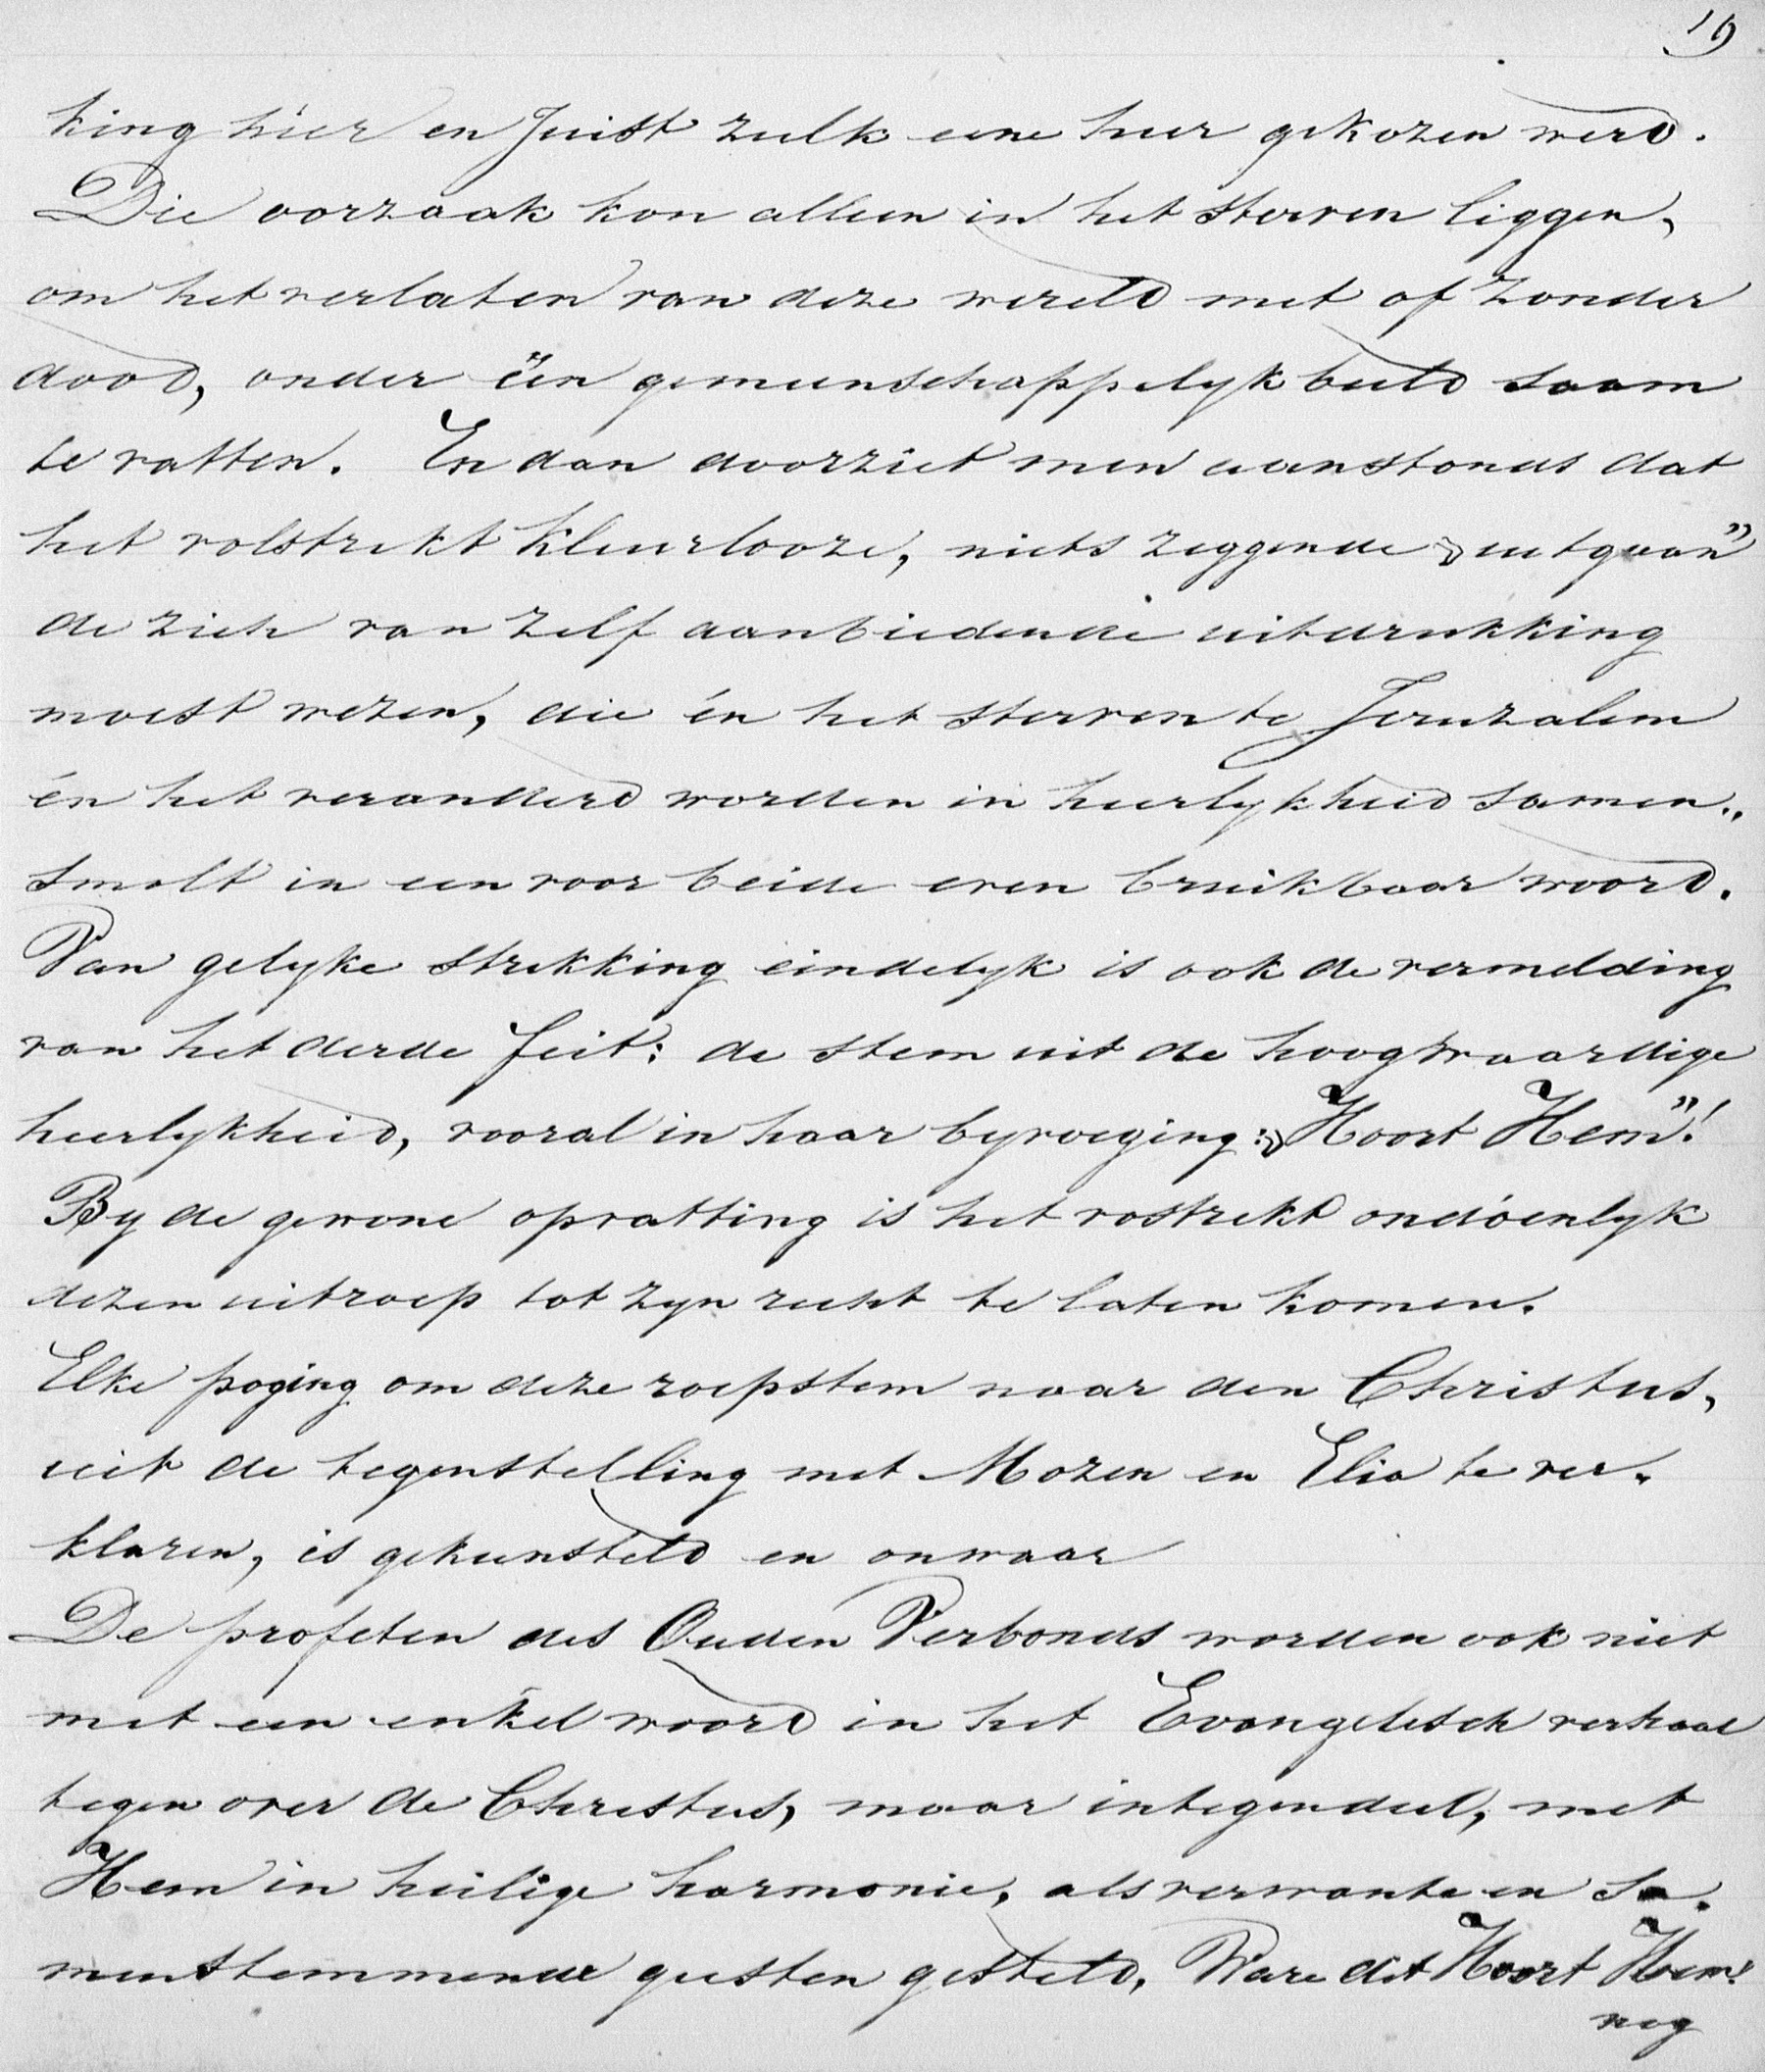 19
king hier en juist zulk eene hier gekozen werd.
Die oorzaak kon alleen in het sterven liggen,
om het verlaten van deze wereld met of zonder
dood, onder één gemeenschappelyk beeld saam
te vatten. En dan doorziet men aanstonds dat
het volstrekt kleurlooze, niets zeggende „uitgaan”
de zich van zelf aanbiedende uitdrukking
moest wezen, die én het sterven te Jeruzalem
én het veranderd worden in heerlykheid samen„
smolt in een voor beide even bruikbaar woord.
Van gelyke strekking eindelyk is ook de vermelding
van het derde feit: de stem uit de hoogwaardige
heerlykheid, vooral in haar byvoeging: „Hoort Hem”!
By de gewone opvatting is het vostrekt ondoenlyk
dezen uitroep tot zyn recht te laten komen.
Elke poging om deze roepstem naar den Christus,
uit de tegenstelling met Mozen en Elia te ver„
klaren, is gekunsteld en onwaar
De profeten des Ouden Verbonds worden ook niet
met een enkel woord in het Evangelisch verhaal
tegen over de Christus, maar integendeel, met
Hem in heilige harmonie, als verwante en sa„
menstemmende geesten gesteld. Ware dit Hoort Hem!
nog